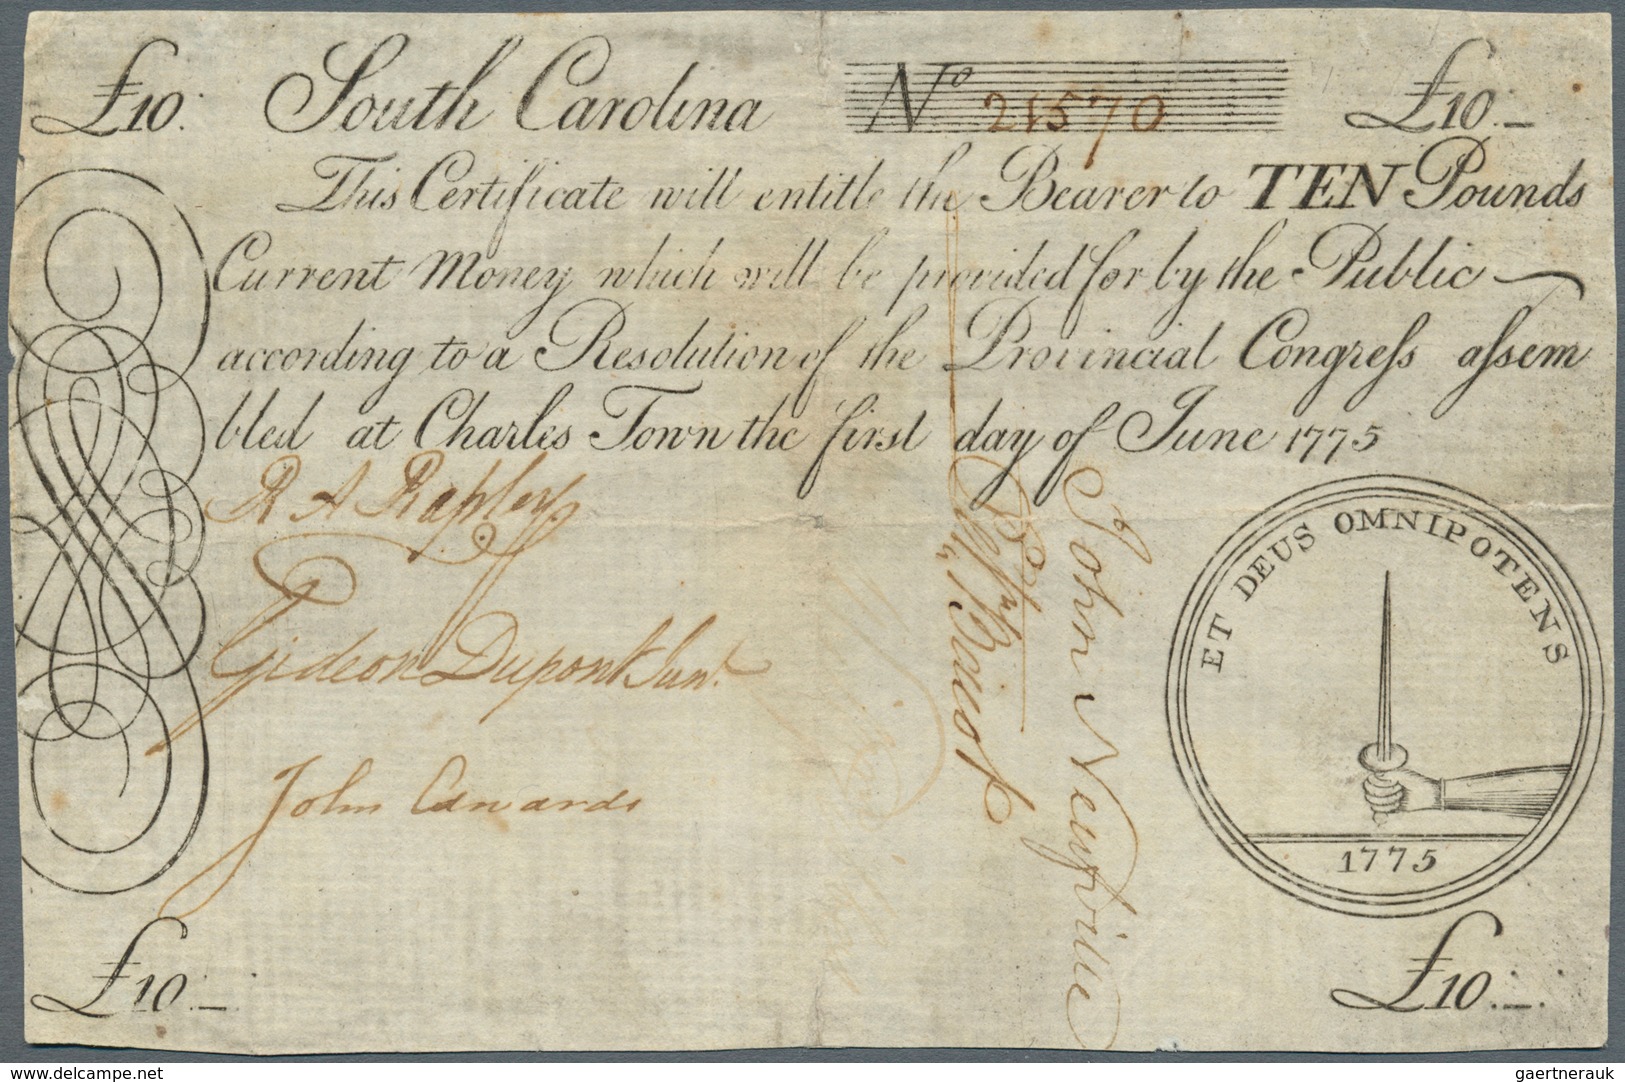 £10. South Carolina Nº 21570 £10.
This Certificate will entitle the Bearer to TEN Pounds
Current Money which will be provided for by the Public
according to a Resolution of the Provincial Congreſs aſsem
bled at Charles Town the first day of June 1775
R A Rapley
Gideon Dupont Junr.
John Edwards
John Neufville
ET DEUS OMNIPOTENS
1775
£10. £10.
www.delcampe.net gaertnerauk